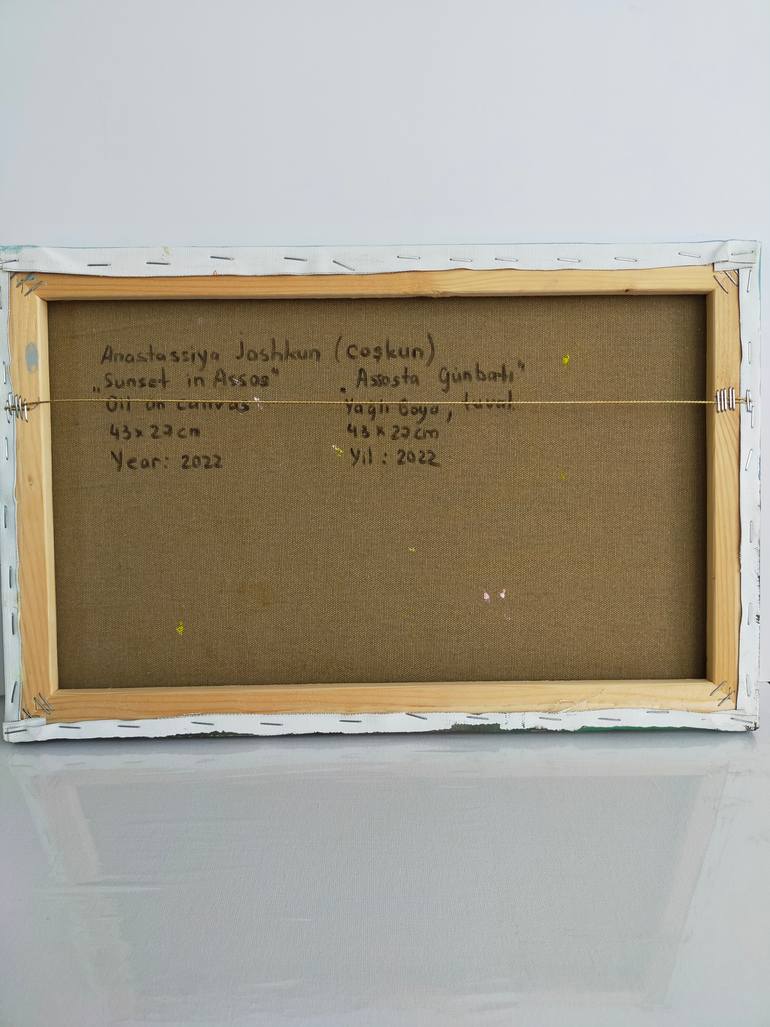 Anastassiya Joshkun (Coşkun)
„Sunset in Assos"
Oil on canvas
43x27cm
Year: 2022
„Assosta Günbatı"
Yağlı Boya, tuval
43x27cm
Yıl: 2022